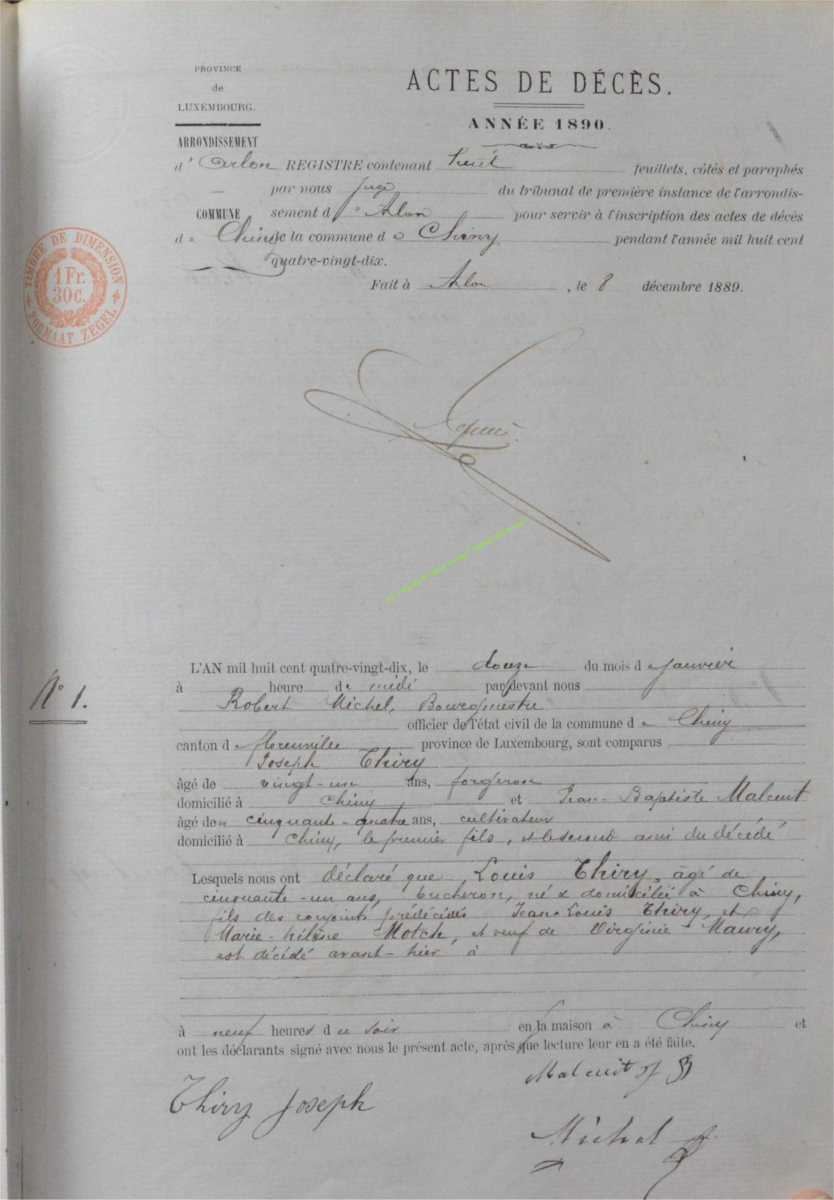 PROVINCE
de
LUXEMBOURG.
ARRONDISSEMENT
d'Arlon
COMMUNE
de Chiny
TIMBRE DE DIMENSION
1 Fr.
30c.
FORMAAT ZEGEL
ACTES DE DÉCÈS.
ANNÉE 1890.
REGISTRE contenant huit feuillets, côtés et paraphés
par nous juge du tribunal de première instance de l'arrondis-
sement d'Arlon pour servir à l'inscription des actes de décès
de la commune de Chiny pendant l'année mil huit cent
quatre-vingt-dix.
Fait à Arlon, le 8 décembre 1889.
N° 1.
L'AN mil huit cent quatre-vingt-dix, le douze du mois de janvier
à heure de midi par devant nous
Robert Michel, Bourgmestre
officier de l'état civil de la commune de Chiny
canton de florenville province de Luxembourg, sont comparus
Joseph Thiry
âgé de vingt-un ans, forgeron
domicilié à Chiny et Jean-Baptiste Malcuit
âgé de cinquante-quatre ans, cultivateur
domicilié à Chiny, le premier fils, et le second ami du décédé
Lesquels nous ont déclaré que Louis Thiry, âgé de
cinquante-un ans, bucheron, né & domicilié à Chiny,
fils des conjoints prédécédés Jean-Louis Thiry, et
Marie-hélène Motch, et veuf de Virginie Maury,
est décédé avant-hier à
à neuf heures du soir en la maison à Chiny et
ont les déclarants signé avec nous le présent acte, après que lecture leur en a été faite.
Malcuit
Thiry Joseph
Michel